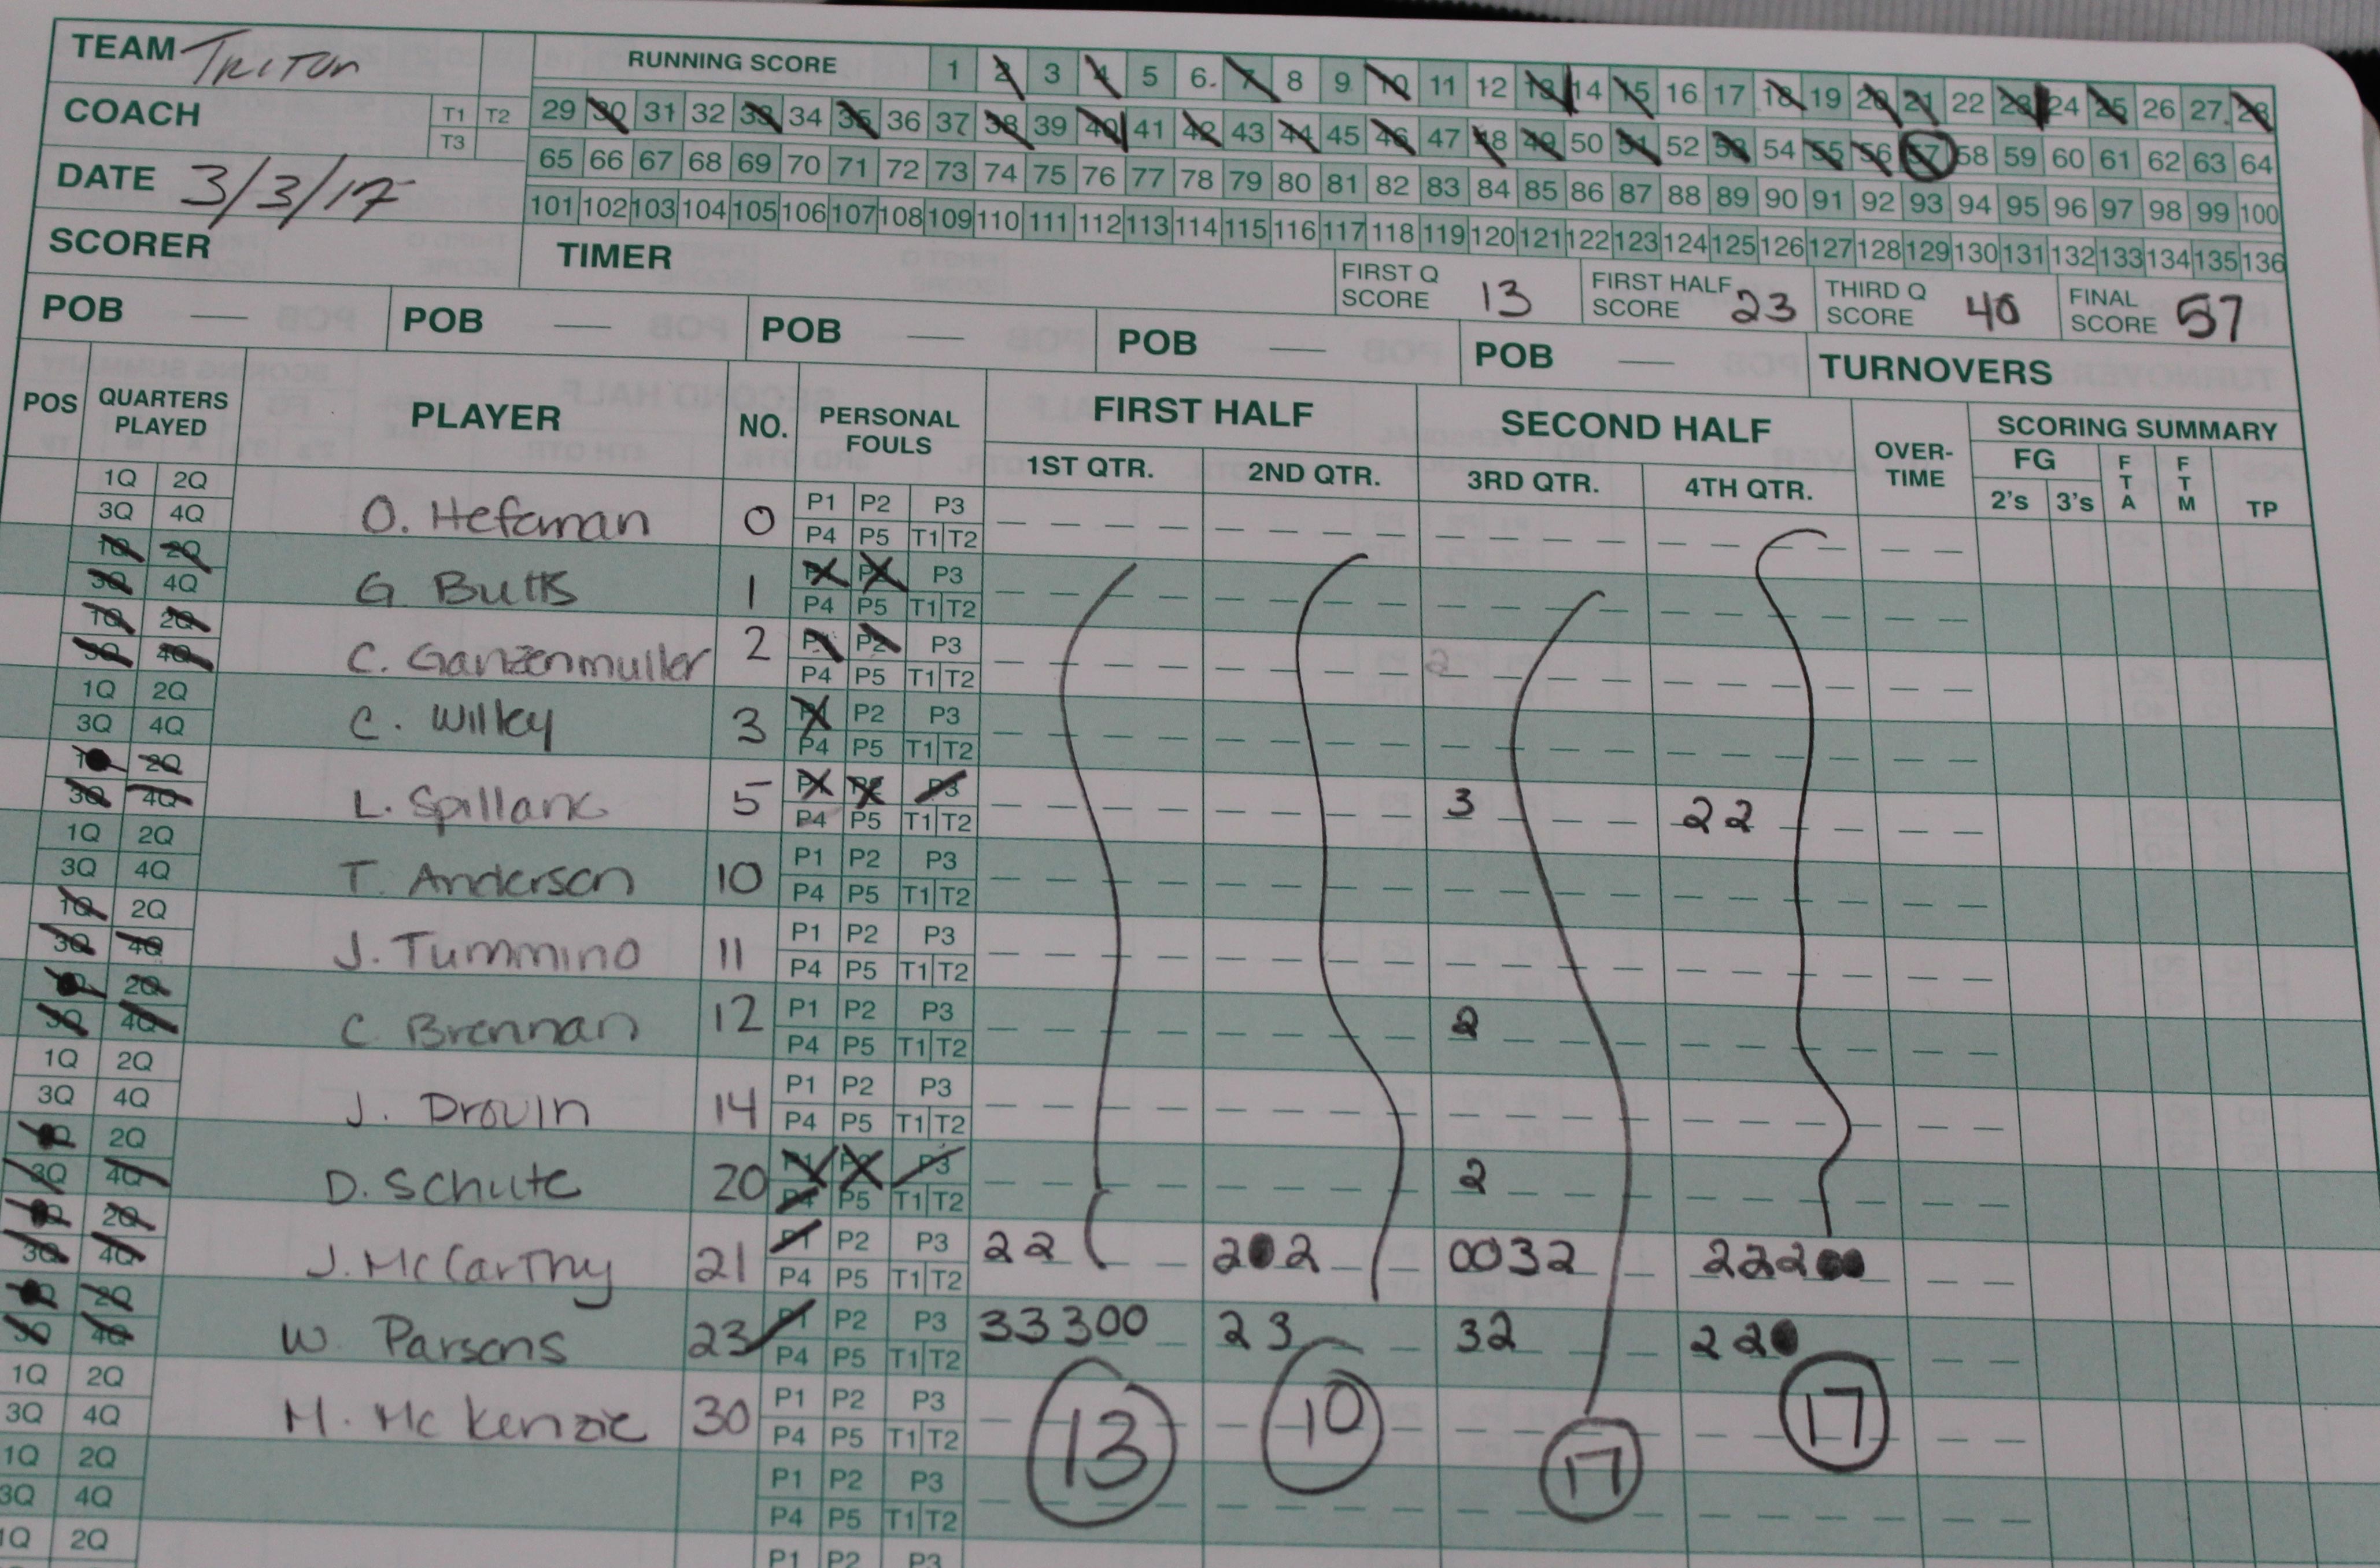 TEAM Triton RUNNING SCORE 1 2 3 4 5 6 7 8 9 10 11 12 13 14 15 16 17 18 19 20 21 22 23 24 25 26 27 28
COACH T1 T2 29 30 31 32 33 34 35 36 37 38 39 40 41 42 43 44 45 46 47 48 49 50 51 52 53 54 55 56 57 58 59 60 61 62 63 64
T3
DATE 3/3/17 65 66 67 68 69 70 71 72 73 74 75 76 77 78 79 80 81 82 83 84 85 86 87 88 89 90 91 92 93 94 95 96 97 98 99 100
101 102 103 104 105 106 107 108 109 110 111 112 113 114 115 116 117 118 119 120 121 122 123 124 125 126 127 128 129 130 131 132 133 134 135 136
SCORER TIMER FIRST Q SCORE 13 FIRST HALF SCORE 23 THIRD Q SCORE 40 FINAL SCORE 57
POB POB POB POB POB TURNOVERS
POS QUARTERS PLAYED PLAYER NO. PERSONAL FOULS FIRST HALF SECOND HALF OVER-TIME SCORING SUMMARY
1ST QTR. 2ND QTR. 3RD QTR. 4TH QTR. FG 2's 3's FTA FTM TP
1Q 2Q P1 P2 P3
3Q 4Q O. Hefferman 0 P4 P5 T1 T2
1Q 2Q P1 P2 P3
3Q 4Q G. Butts 1 P4 P5 T1 T2
1Q 2Q P1 P2 P3
3Q 4Q C. Ganzenmuller 2 P4 P5 T1 T2 2
1Q 2Q P1 P2 P3
3Q 4Q C. Willey 3 P4 P5 T1 T2
1Q 2Q P1 P2 P3
3Q 4Q L. Spillane 5 P4 P5 T1 T2 3 22
1Q 2Q P1 P2 P3
3Q 4Q T. Anderson 10 P4 P5 T1 T2
1Q 2Q P1 P2 P3
3Q 4Q J. Tummino 11 P4 P5 T1 T2
1Q 2Q P1 P2 P3
3Q 4Q C Brennan 12 P4 P5 T1 T2 2
1Q 2Q P1 P2 P3
3Q 4Q J. Drouin 14 P4 P5 T1 T2
1Q 2Q P1 P2 P3
3Q 4Q D. Schute 20 P4 P5 T1 T2 2
1Q 2Q P1 P2 P3
3Q 4Q J. McCarthy 21 P4 P5 T1 T2 22 202 0032 22200
1Q 2Q P1 P2 P3
3Q 4Q W. Parsons 23 P4 P5 T1 T2 33300 23 32 220
1Q 2Q P1 P2 P3
3Q 4Q M. McKenzie 30 P4 P5 T1 T2 13 10 17 17
1Q 2Q P1 P2 P3
3Q 4Q P4 P5 T1 T2
1Q 2Q P1 P2 P3